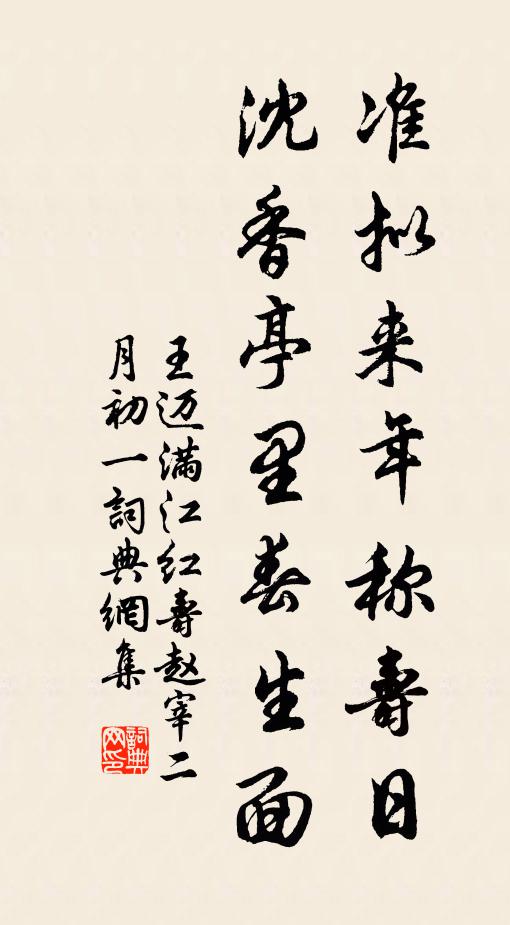 准拟来年称寿日
沈香亭里春生面
王迈满江红寿赵宰二
月初一词典網集
詞典网印